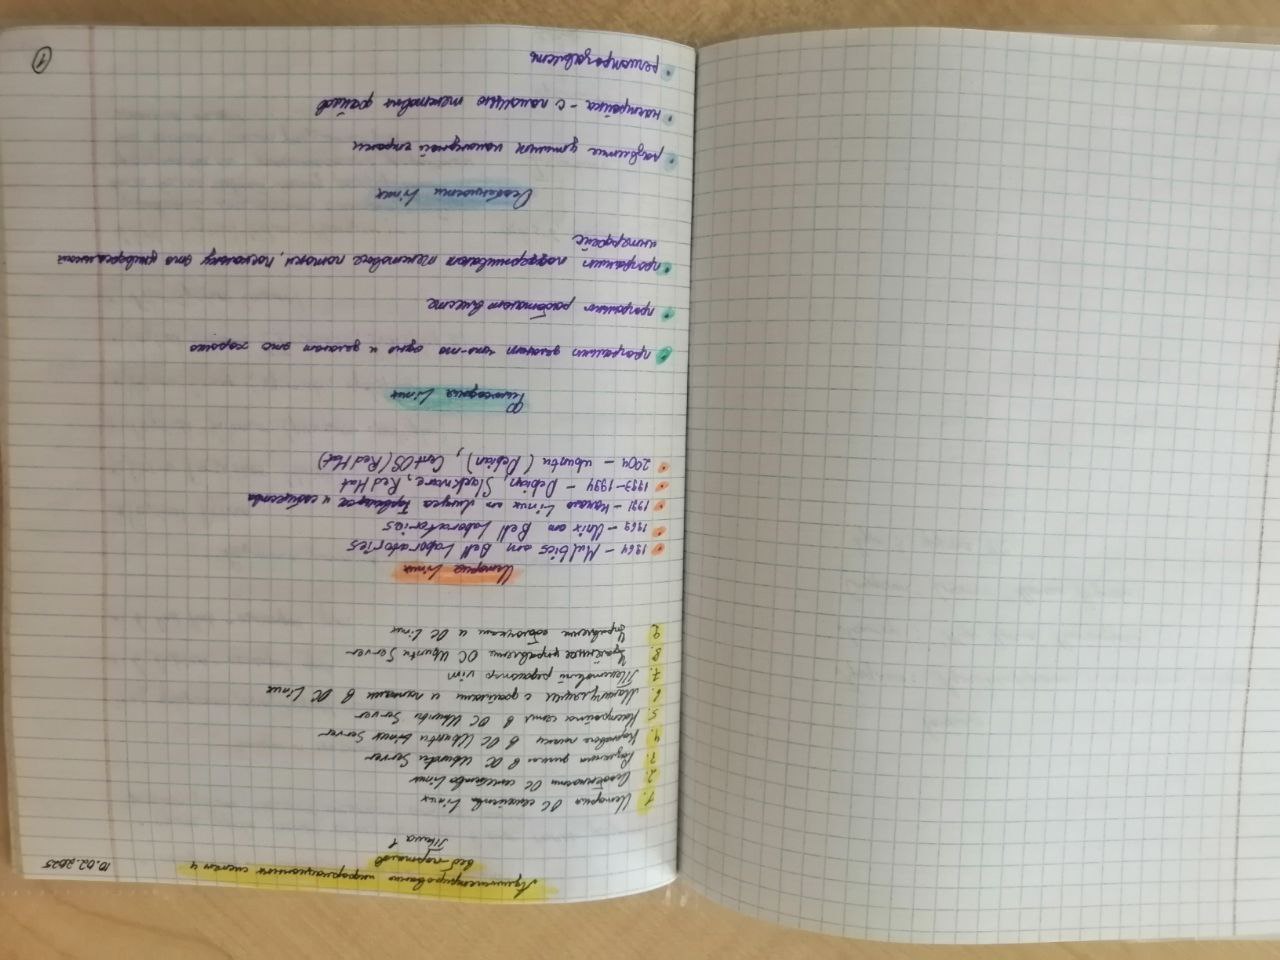 Администрирование информационных систем и
веб-порталов
10.02.2025
Тема 1
1. История ОС семейства Linux
2. Особенности ОС семейства Linux
3. Разметка диска в ОС Ubuntu Server
4. Корневые папки в ОС Ubuntu Linux Server
5. Настройка сети в ОС Ubuntu Server
6. Манипуляции с файлами и папками в ОС Linux
7. Текстовый редактор vim
8. Удалённое управление ОС Ubuntu Server
9. Управление оболочками и ОС Linux
История Linux
• 1964 – Multics от Bell Laboratories
• 1969 – Unix от Bell Laboratories
• 1991 – начало Linux от Линуса Торвальдса и сообщества
• 1993-1994 – Debian, Slackware, Red Hat
• 2004 – ubuntu (Debian), CentOS (Red Hat)
Философия Linux
• программы делают что-то одно и делают это хорошо
• программы работают вместе
• программы поддерживают текстовые потоки, поскольку это универсальный
интерфейс
Особенности Linux
• развитие утилит командной строки
• настройка – с помощью текстовых файлов
1